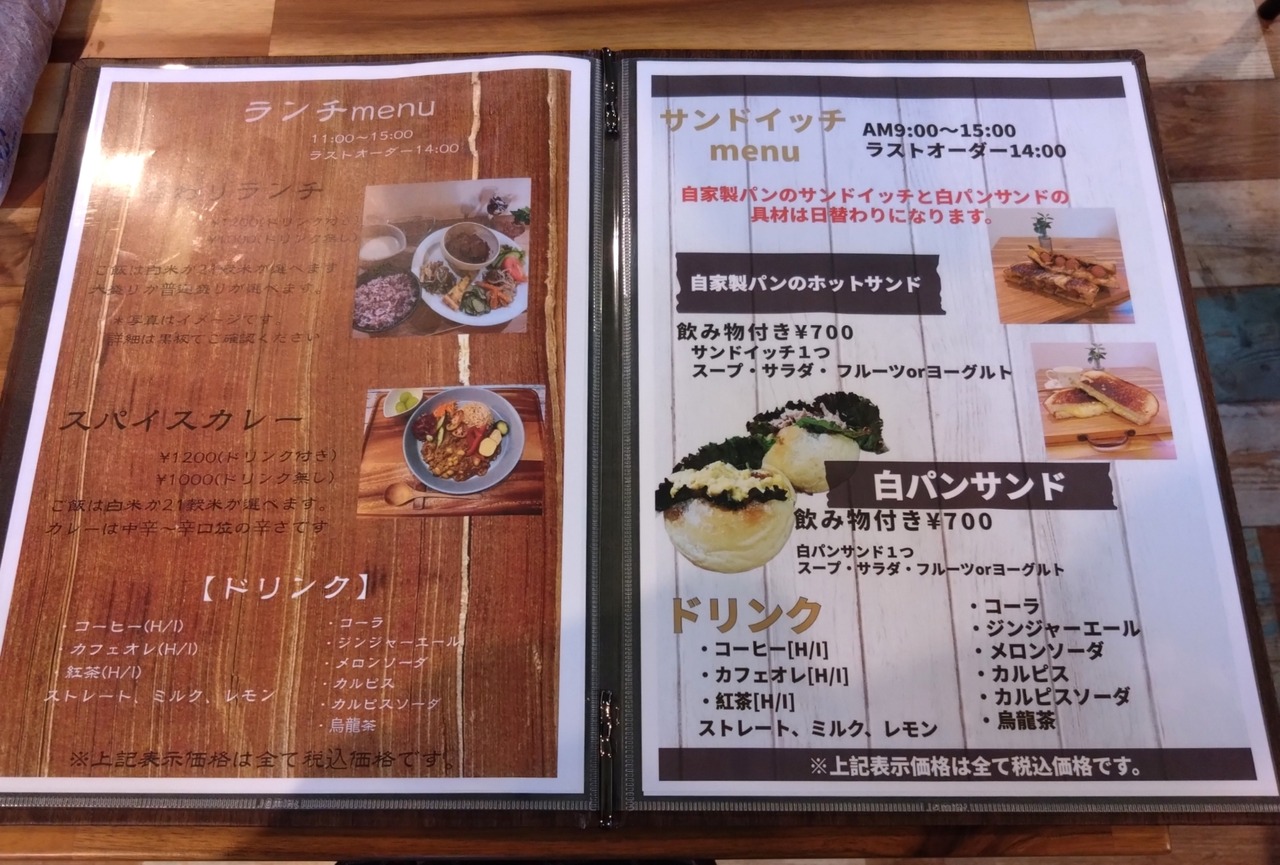 ランチmenu
11:00～15:00
ラストオーダー14:00
リランチ
ご飯は白米か21穀米が選べます
大盛りか普通盛りが選べます。
*写真はイメージです。
詳細は黒板でご確認ください
スパイスカレー
¥1200(ドリンク付き)
¥1000(ドリンク無し)
ご飯は白米か21穀米が選べます。
カレーは中辛～辛口位の辛さです
【ドリンク】
・コーヒー(H/I)
・カフェオレ(H/I)
・紅茶(H/I)
ストレート、ミルク、レモン
・コーラ
・ジンジャーエール
・メロンソーダ
・カルピス
・カルピスソーダ
・烏龍茶
※上記表示価格は全て税込価格です。
サンドイッチ
menu
AM9:00～15:00
ラストオーダー14:00
自家製パンのサンドイッチと白パンサンドの
具材は日替わりになります。
自家製パンのホットサンド
飲み物付き¥700
サンドイッチ１つ
スープ・サラダ・フルーツorヨーグルト
白パンサンド
飲み物付き¥700
白パンサンド１つ
スープ・サラダ・フルーツorヨーグルト
ドリンク
・コーヒー[H/I]
・カフェオレ[H/I]
・紅茶[H/I]
ストレート、ミルク、レモン
・コーラ
・ジンジャーエール
・メロンソーダ
・カルピス
・カルピスソーダ
・烏龍茶
※上記表示価格は全て税込価格です。